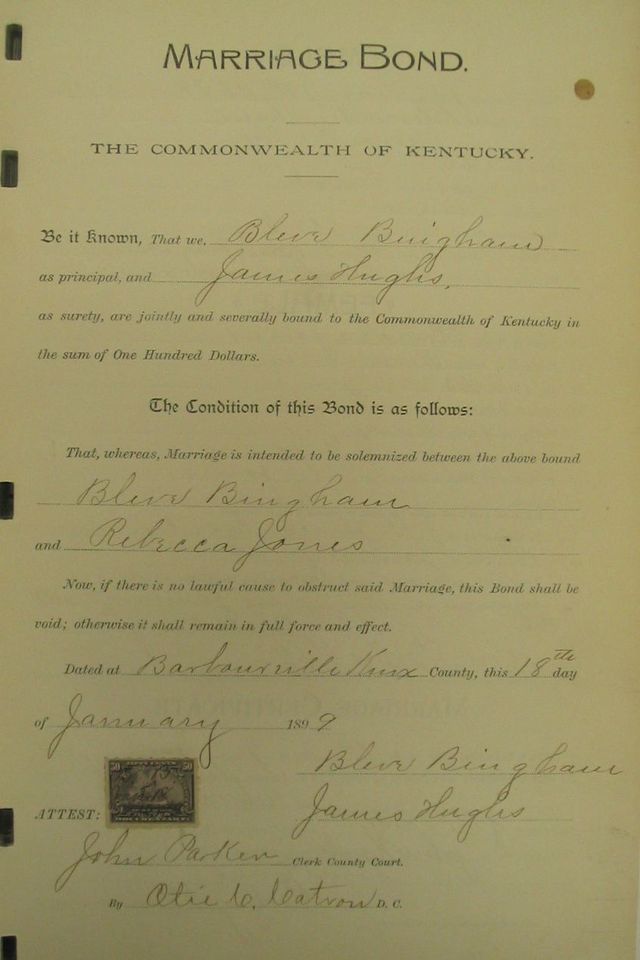 MARRIAGE BOND.
THE COMMONWEALTH OF KENTUCKY.
Be it Known, That we, Bleve Bingham
as principal, and James Hughs,
as surety, are jointly and severally bound to the Commonwealth of Kentucky in
the sum of One Hundred Dollars.
The Condition of this Bond is as follows:
That, whereas, Marriage is intended to be solemnized between the above bound
Bleve Bingham
and Rebecca Jones
Now, if there is no lawful cause to obstruct said Marriage, this Bond shall be
void; otherwise it shall remain in full force and effect.
Dated at Barbourville Knox County, this 18th day
of January 1899
Bleve Bingham
50 50
ATTEST: James Hughs
John Parker Clerk County Court.
By Otie C. Catron D. C.